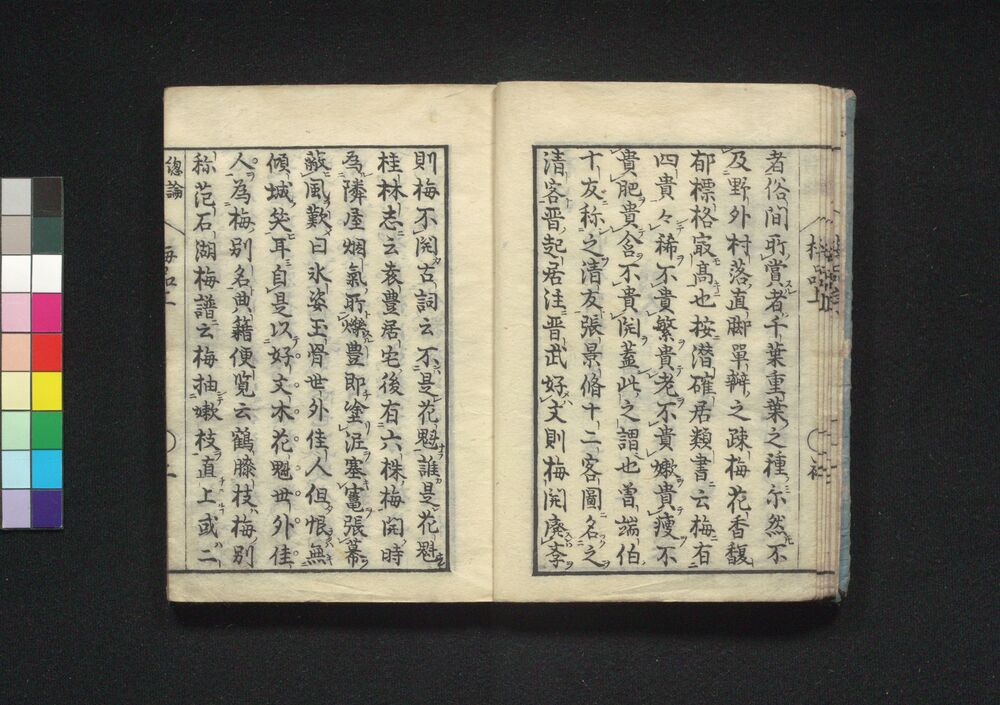 者俗間所賞者千葉重葉之種尓然不
及野外村落直脚單瓣之疎梅花香馥
郁標格㝡髙也按潜確居類書云梅有
四貴々稀不貴繁貴老不貴嫩貴痩不
貴肥貴含不貴開蓋此之謂也曽端伯
十友称之清友張景脩十二客圖名之
清客晋起居注晋武好文則梅開廃李
則梅不開古詞云不是花魁誰是花魁
桂林志云袁豊居宅後有六株梅開時
為隣屋烟氣所爍豊即塗泥塞竃張幕
蔽風歎曰氷姿玉骨世外佳人但恨無
傾城笑耳自是以好文木花魁世外佳
人為梅別名典藉便覧云鶴膝枝梅別
称范石湖梅譜云梅抽嫩枝直上或二
総論